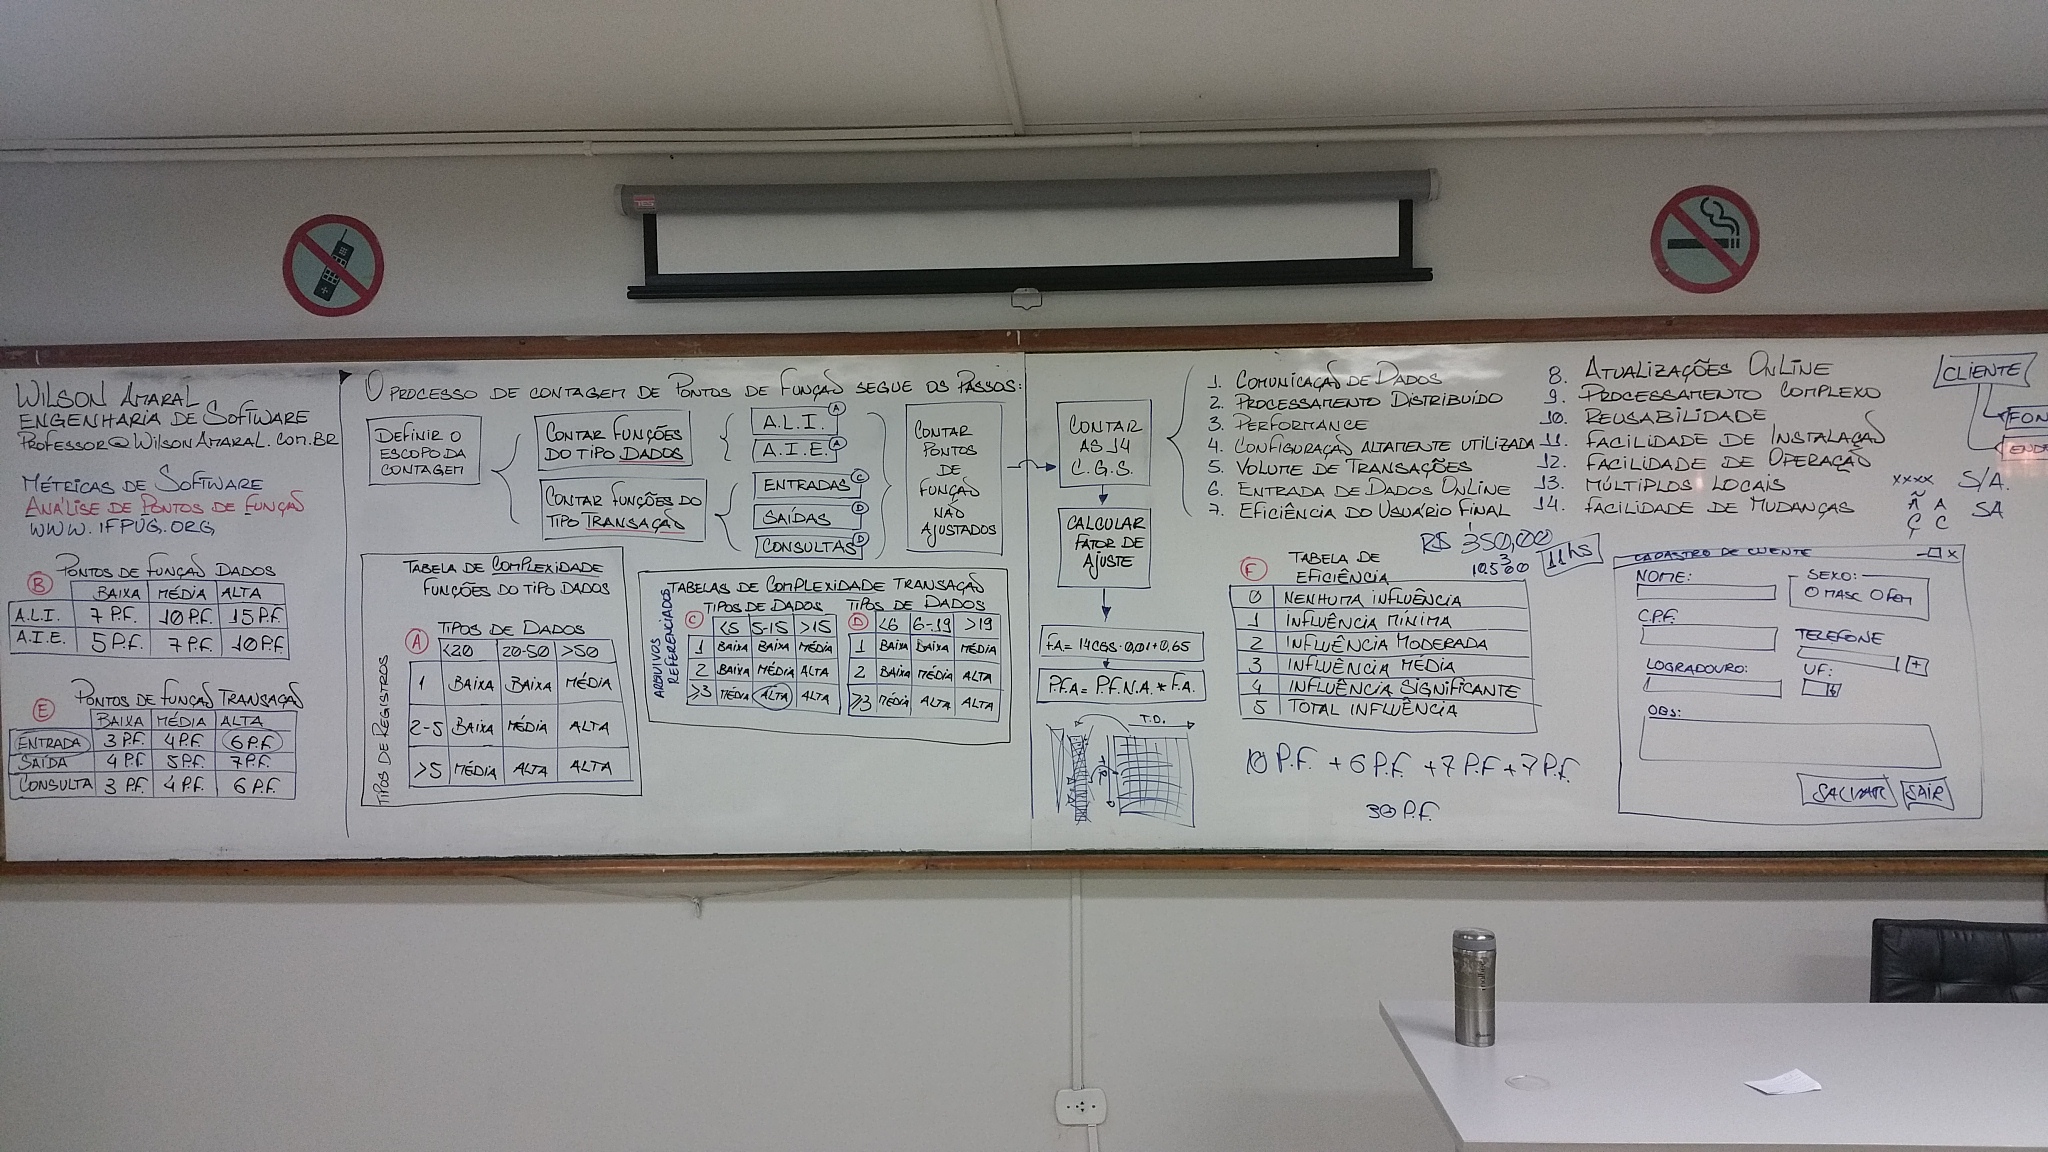 WILSON AMARAL
ENGENHARIA DE SOFTWARE
PROFESSOR@WILSONAMARAL.COM.BR
MÉTRICAS DE SOFTWARE
ANÁLISE DE PONTOS DE FUNÇÃO
WWW.IFPUG.ORG
B PONTOS DE FUNÇÃO DADOS
BAIXA MÉDIA ALTA
A.L.I. 7 P.F. 10 P.F. 15 P.F.
A.I.E. 5 P.F. 7 P.F. 10 P.F.
E PONTOS DE FUNÇÃO TRANSAÇÃO
BAIXA MÉDIA ALTA
ENTRADA 3 P.F. 4 P.F. 6 P.F.
SAÍDA 4 P.F. 5 P.F. 7 P.F.
CONSULTA 3 P.F. 4 P.F. 6 P.F.
O PROCESSO DE CONTAGEM DE PONTOS DE FUNÇÃO SEGUE OS PASSOS:
DEFINIR O
ESCOPO DA
CONTAGEM
CONTAR FUNÇÕES
DO TIPO DADOS
CONTAR FUNÇÕES DO
TIPO TRANSAÇÃO
A.L.I. A
A.I.E. A
ENTRADAS C
SAÍDAS D
CONSULTAS D
CONTAR
PONTOS
DE
FUNÇÃO
NÃO
AJUSTADOS
TABELA DE COMPLEXIDADE
FUNÇÕES DO TIPO DADOS
TIPOS DE DADOS
A <20 20-50 >50
TIPOS DE REGISTROS
1 BAIXA BAIXA MÉDIA
2-5 BAIXA MÉDIA ALTA
>5 MÉDIA ALTA ALTA
TABELAS DE COMPLEXIDADE TRANSAÇÃO
ARQUIVOS
REFERENCIADOS
TIPOS DE DADOS
C <5 5-15 >15
1 BAIXA BAIXA MÉDIA
2 BAIXA MÉDIA ALTA
≥3 MÉDIA ALTA ALTA
TIPOS DE DADOS
D <6 6-19 >19
1 BAIXA BAIXA MÉDIA
2 BAIXA MÉDIA ALTA
≥3 MÉDIA ALTA ALTA
CONTAR
AS 14
C.G.S.
CALCULAR
FATOR DE
AJUSTE
FA = 14CGS · 0,01 + 0,65
P.F.A = P.F.N.A. * F.A.
T.D.
1. COMUNICAÇÃO DE DADOS
2. PROCESSAMENTO DISTRIBUÍDO
3. PERFORMANCE
4. CONFIGURAÇÃO ALTAMENTE UTILIZADA
5. VOLUME DE TRANSAÇÕES
6. ENTRADA DE DADOS ONLINE
7. EFICIÊNCIA DO USUÁRIO FINAL
8. ATUALIZAÇÕES ONLINE
9. PROCESSAMENTO COMPLEXO
10. REUSABILIDADE
11. FACILIDADE DE INSTALAÇÃO
12. FACILIDADE DE OPERAÇÃO
13. MÚLTIPLOS LOCAIS
14. FACILIDADE DE MUDANÇAS
R$ 350,00
11hs
F TABELA DE
EFICIÊNCIA
0 NENHUMA INFLUÊNCIA
1 INFLUÊNCIA MÍNIMA
2 INFLUÊNCIA MODERADA
3 INFLUÊNCIA MÉDIA
4 INFLUÊNCIA SIGNIFICANTE
5 TOTAL INFLUÊNCIA
10 P.F. + 6 P.F. + 7 P.F. + 7 P.F.
30 P.F.
CLIENTE
FON
ENDE
XXXX S/A.
Ã A SA
Ç C
CADASTRO DE CLIENTE
NOME:
SEXO:
O MASC O FEM
C.P.F.
TELEFONE
+
LOGRADOURO:
UF:
OBS:
SALVAR SAIR